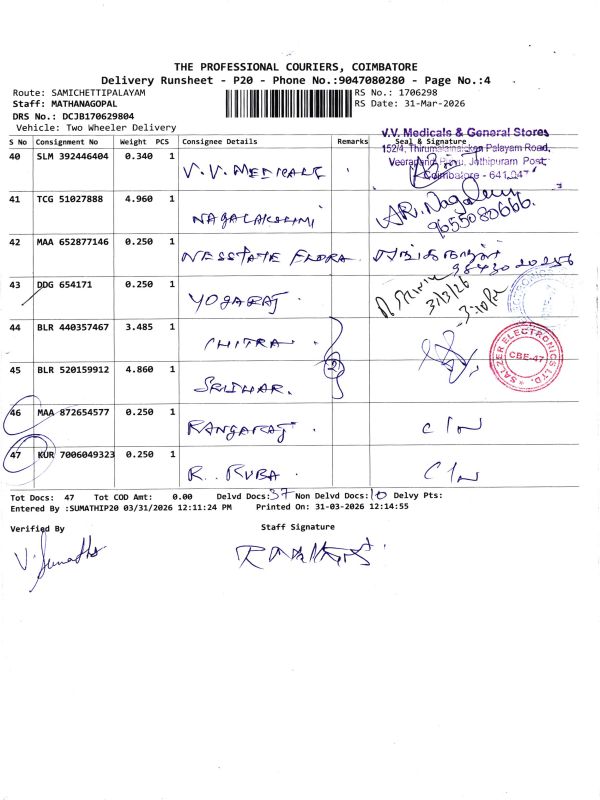 THE PROFESSIONAL COURIERS, COIMBATORE
Delivery Runsheet - P20 - Phone No.:9047080280 - Page No.:4
Route: SAMICHETTIPALAYAM
RS No.: 1706298
Staff: MATHANAGOPAL
RS Date: 31-Mar-2026
DRS No.: DCJB170629804
Vehicle: Two Wheeler Delivery
S No Consignment No Weight PCS Consignee Details Remarks Seal & Signature
V.V. Medicals & General Stores
152/4, Thirumalainaicken Palayam Road,
Jothipuram Post,
Coimbatore - 641 047
40 SLM 392446404 0.340 1 V.V. MEDICALS
41 TCG 51027888 4.960 1 NAGALAKSHMI
AR. Nagalaxmi
9655080666.
42 MAA 652877146 0.250 1 NESSTATE FLORA
43 DDG 654171 0.250 1 YOGARAJ
31/3/26
3:10 Pm
44 BLR 440357467 3.485 1 CHITRA
2
SALZER ELECTRONICS LTD.
CBE-47
45 BLR 520159912 4.860 1 SRIDHAR.
46 MAA 872654577 0.250 1 RANGARAJ C/N
47 KUR 7006049323 0.250 1 R. RUBA C/N
Tot Docs: 47 Tot COD Amt: 0.00 Delvd Docs: 37 Non Delvd Docs: 10 Delvy Pts:
Entered By :SUMATHIP20 03/31/2026 12:11:24 PM Printed On: 31-03-2026 12:14:55
Verified By Staff Signature
V. Sumathi